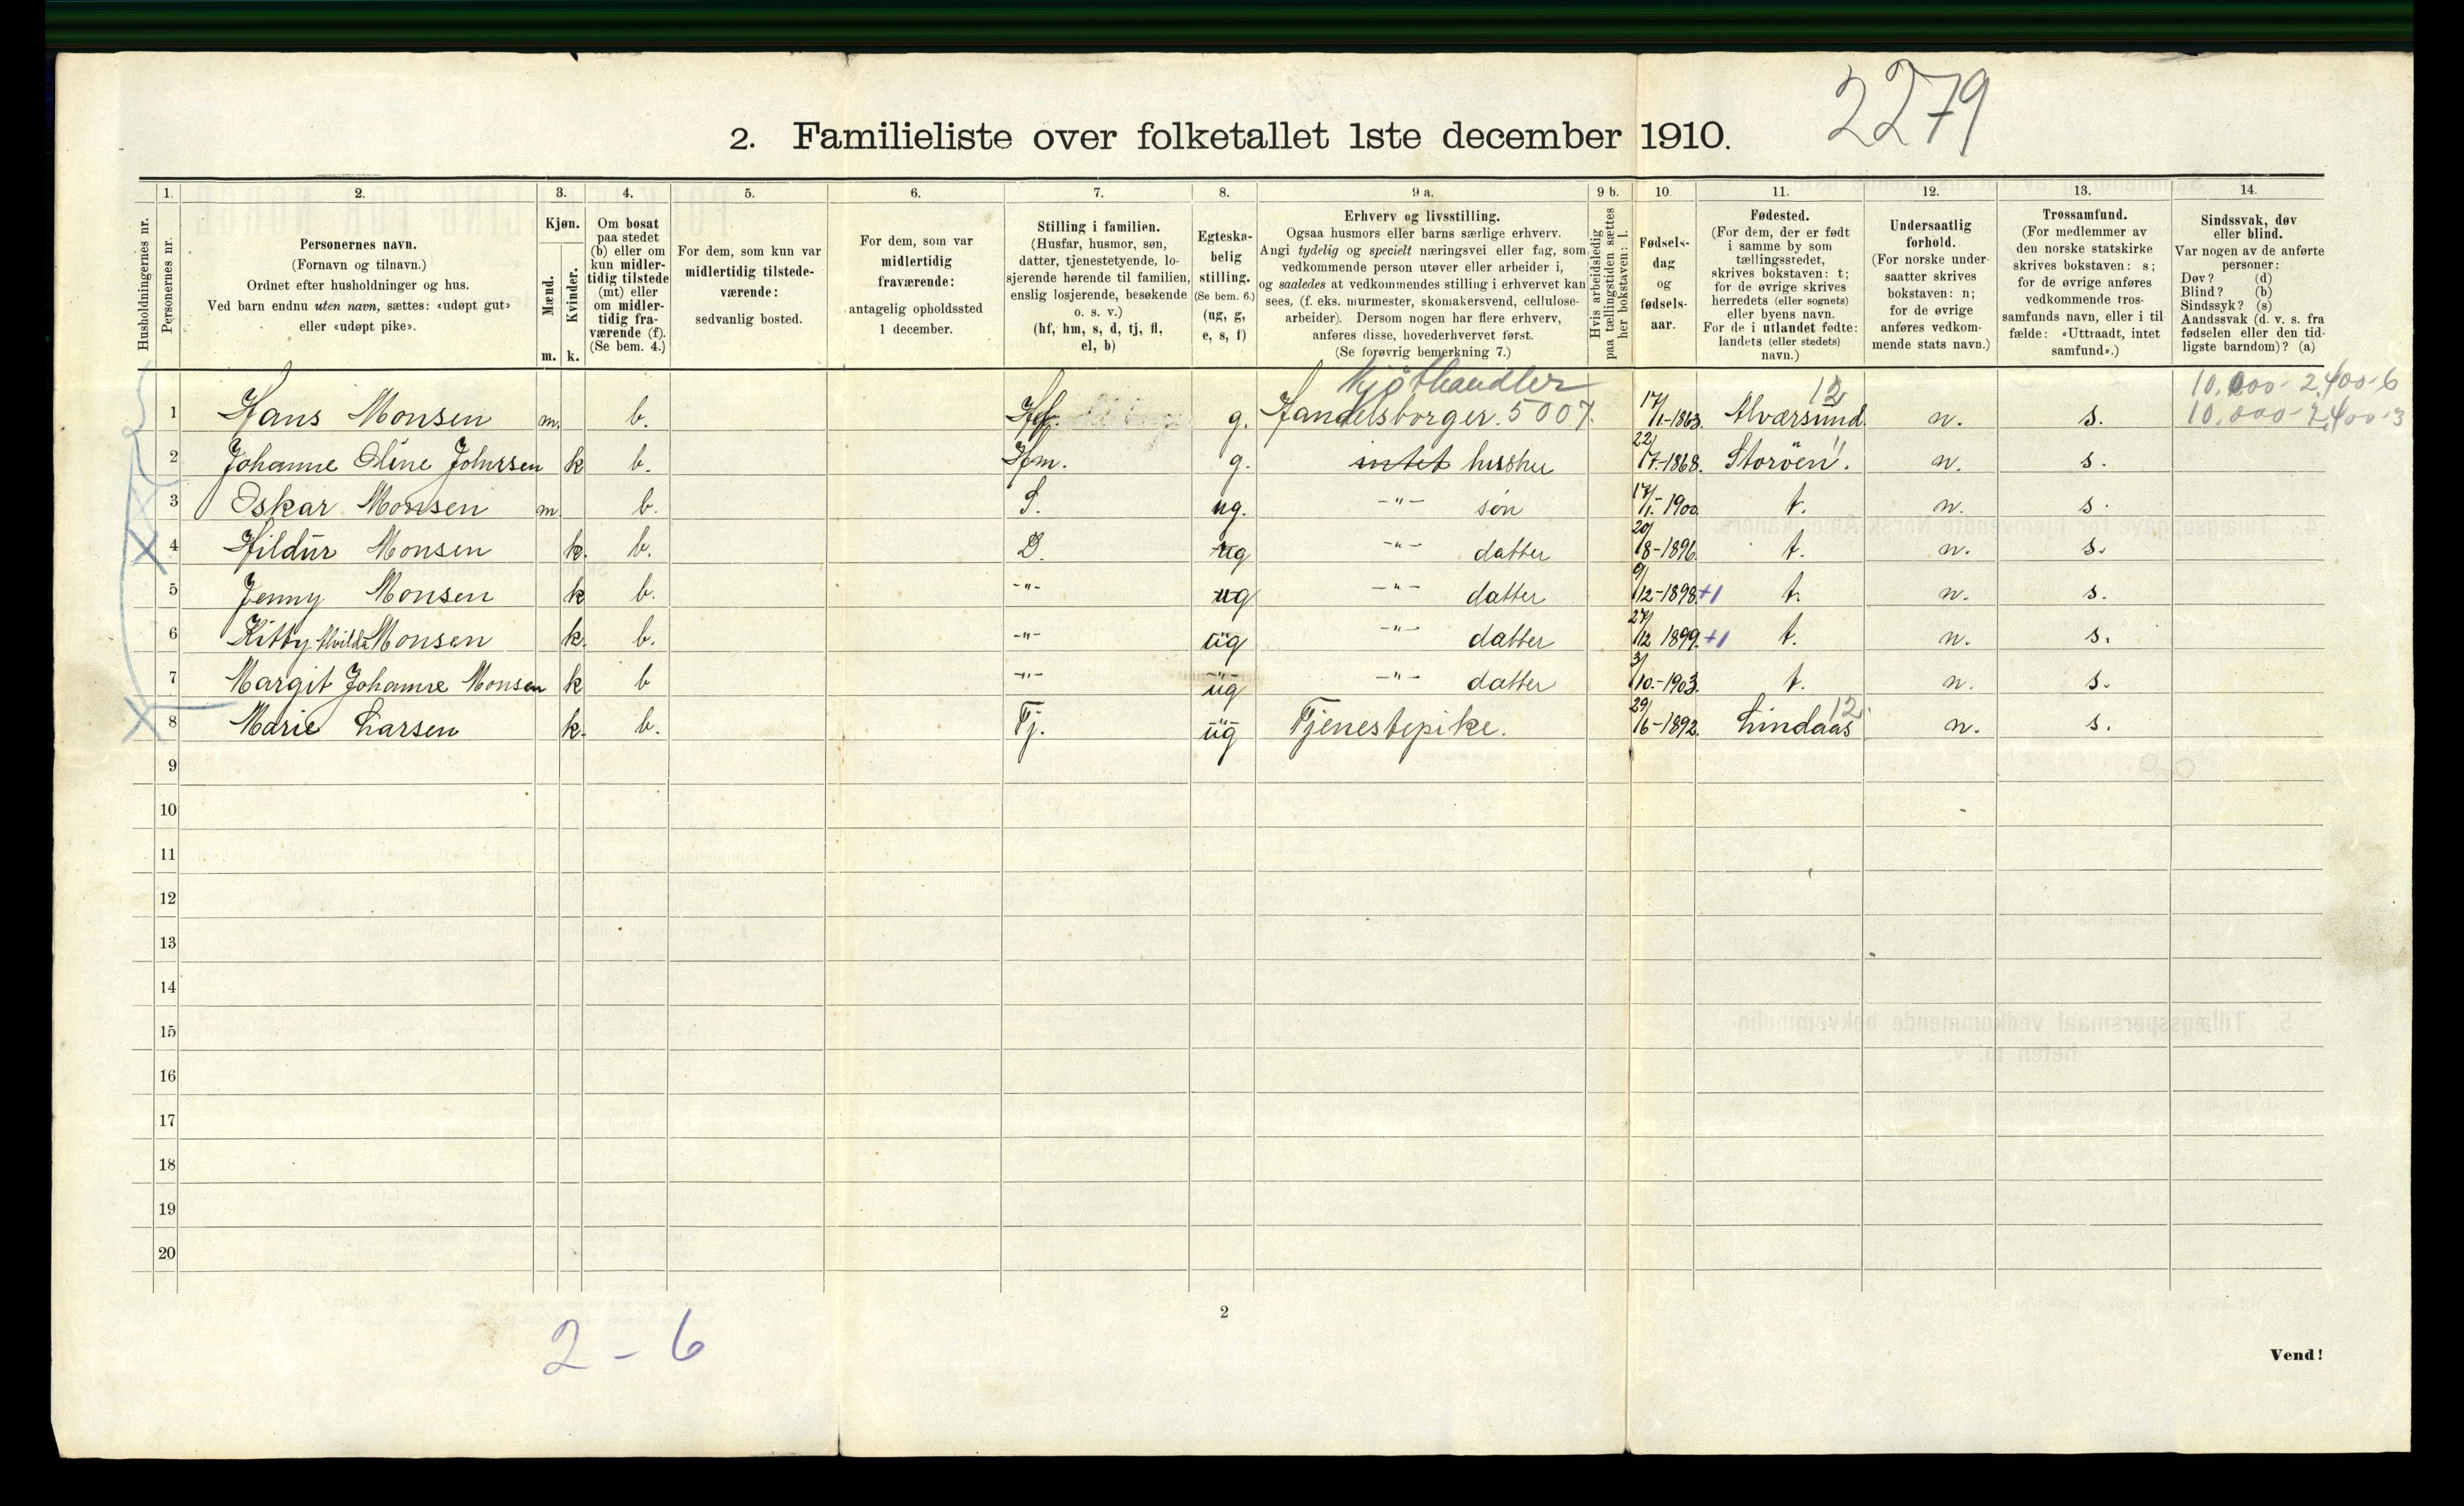 2279
2. Familieliste over folketallet 1ste december 1910.
Husholdningernes nr.
1.
Personernes nr.
2.
Personernes navn.
(Fornavn og tilnavn.)
Ordnet efter husholdninger og hus.
Ved barn endnu uten navn, sættes: «udøpt gut»
eller «udøpt pike».
3.
Kjøn.
Mænd.
Kvinder.
m. k.
4.
Om bosat
paa stedet
(b) eller om
kun midler-
tidig tilstede
(mt) eller
om midler-
tidig fra-
værende (f).
(Se bem. 4.)
5.
For dem, som kun var
midlertidig tilstede-
værende:
sedvanlig bosted.
6.
For dem, som var
midlertidig
fraværende:
antagelig opholdssted
1 december.
7.
Stilling i familien.
(Husfar, husmor, søn,
datter, tjenestetyende, lo-
sjerende hørende til familien,
enslig losjerende, besøkende
o. s. v.)
(hf, hm, s, d, tj, fl,
el, b)
8.
Egteska-
belig
stilling.
(Se bem. 6.)
(ug, g,
e, s, f)
9 a.
Erhverv og livsstilling.
Ogsaa husmors eller barns særlige erhverv.
Angi tydelig og specielt næringsvei eller fag, som
vedkommende person utøver eller arbeider i,
og saaledes at vedkommendes stilling i erhvervet kan
sees, (f. eks. murmester, skomakersvend, cellulose-
arbeider). Dersom nogen har flere erhverv,
anføres disse, hovederhvervet først.
(Se forøvrig bemerkning 7.)
9 b.
Hvis arbeidsledig
paa tællingstiden sættes
her bokstaven: l.
10.
Fødsels-
dag
og
fødsels-
aar.
11.
Fødested.
(For dem, der er født
i samme by som
tællingsstedet,
skrives bokstaven: t;
for de øvrige skrives
herredets (eller sognets)
eller byens navn.
For de i utlandet fødte:
landets (eller stedets)
navn.)
12.
Undersaatlig
forhold.
(For norske under-
saatter skrives
bokstaven: n;
for de øvrige
anføres vedkom-
mende stats navn.)
13.
Trossamfund.
(For medlemmer av
den norske statskirke
skrives bokstaven: s;
for de øvrige anføres
vedkommende tros-
samfunds navn, eller i til-
fælde: «Uttraadt, intet
samfund».)
14.
Sindssvak, døv
eller blind.
Var nogen av de anførte
personer:
Døv? (d)
Blind? (b)
Sindssyk? (s)
Aandssvak (d. v. s. fra
fødselen eller den tid-
ligste barndom)? (a)
Kjøthandler 12 10.000-2,400-6
1 Hans Monsen m. b. Hf. g. Handelsborger. 5007. 17/1-1863. Alværsund n. s. 10.000-2,400-3
2 Johanne Oline Johnssen k b. Hm. g. intet husstu 22/7-1868. Storöen". n. s.
3 Oskar Monsen m. b. S. ug. -"- søn 17/1-1900. t. n. s.
4 Hildur Monsen k. b. D. ug -"- datter 20/8-1896. t. n. s.
5 Jenny Monsen k b. -"- ug -"- datter 9/12-1898. +1 t. n. s.
6 Kitty Alvilda Monsen k. b. -"- ug -"- datter 27/12 1899. +1 t. n. s.
7 Margit Johanne Monsen k b -"- ug -"- datter 3/10-1903. t. n. s.
8 Marie Larsen k. b. Tj. ug Tjenestepike. 29/6-1892. Lindaas 12 n. s.
9
10
11
12
13
14
15
16
17
18
19
20
2
2-6
Vend!